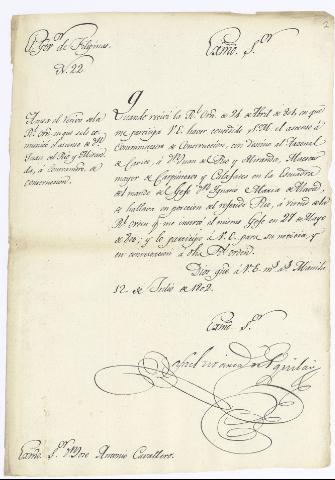 2
El Gov.r de Filipinas.
N. 22.
Exmô. S.or
Avisa el recivo de la
R.l orñ en que se le comunica el ascenso de D.n
Juan del Rio y Miranda, à Comandte. de
conservacion.
Quando recivi la R.l Orñ. de 24 de Abril de 801, en que
me participa V.E. haver concedido S.M. el ascenso à
de conservacion, con destino al Arsenal
de Cavite, à D.n Juan del Rio y Miranda, Maestro
mayor de Carpinteros y Calafates en la Esquadra
del mando del Gefe D.n Ignacio Maria de Alava,
se hallava en posesion el referido Rio, à virtud de la
R.l orden q.e me insertó el mismo Gefe en 27 de Mayo
de 800; y lo participo à V.E. para su noticia, y
en contextacion à dha R.l orden.
Dios gûe à V.E. m.s a.s Manila
12 de Julio de 1802.
Exmô. S.or
Rafael Maria de Aguilar
Exmô. S.or D.n Jose Antonio Cavallero.